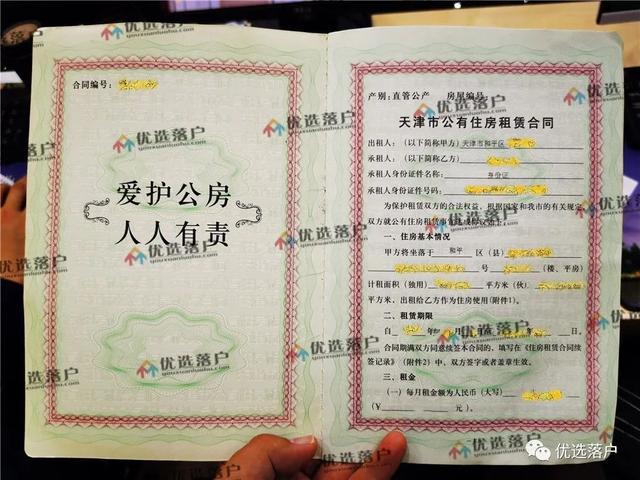 合同编号:
爱护公房
人人有责
产别:直管公产 房屋编号:
天津市公有住房租赁合同
出租人:(以下简称甲方)天津市和平区
承租人:(以下简称乙方)
承租人身份证件名称: 身份证
承租人身份证件号码:
为保护租赁双方的合法权益,根据国家和我市的有关规定,
双方就公有住房租赁事宜达成协议如下:
一、住房基本情况
甲方将坐落于 和平 区(县)
号 (楼、平房)
计租面积(独用) 平方米(伙)
平方米,出租给乙方作为住房使用(附件1)。
二、租赁期限
自 年 月 日。
合同期满双方同意续签本合同的,填写在《住房租赁合同续
签记录》(附件2)中,双方签字或者盖章生效。
三、租金
(一)每月租金额为人民币(大写)
(¥ 元)。
优选落户
youxuanluohu.com
优选落户